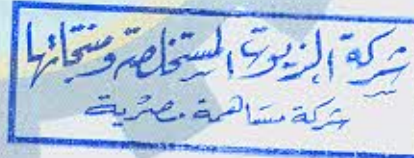 شركة الزيوت المستخلصة ومنتجاتها
شركة مساهمة مصرية